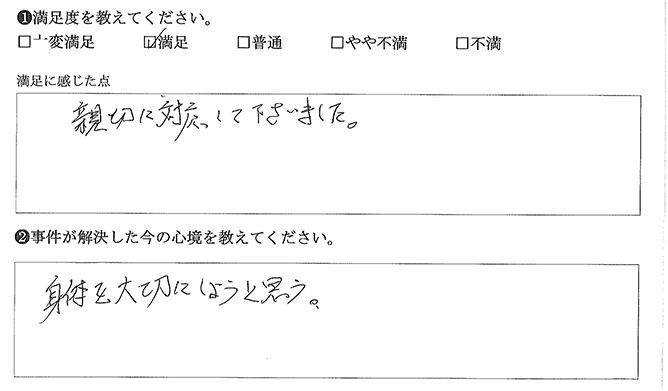 ❶満足度を教えてください。
□大変満足 ☑満足 □普通 □やや不満 □不満
満足に感じた点
親切に対応して下さいました。
❷事件が解決した今の心境を教えてください。
身体を大切にしようと思う。